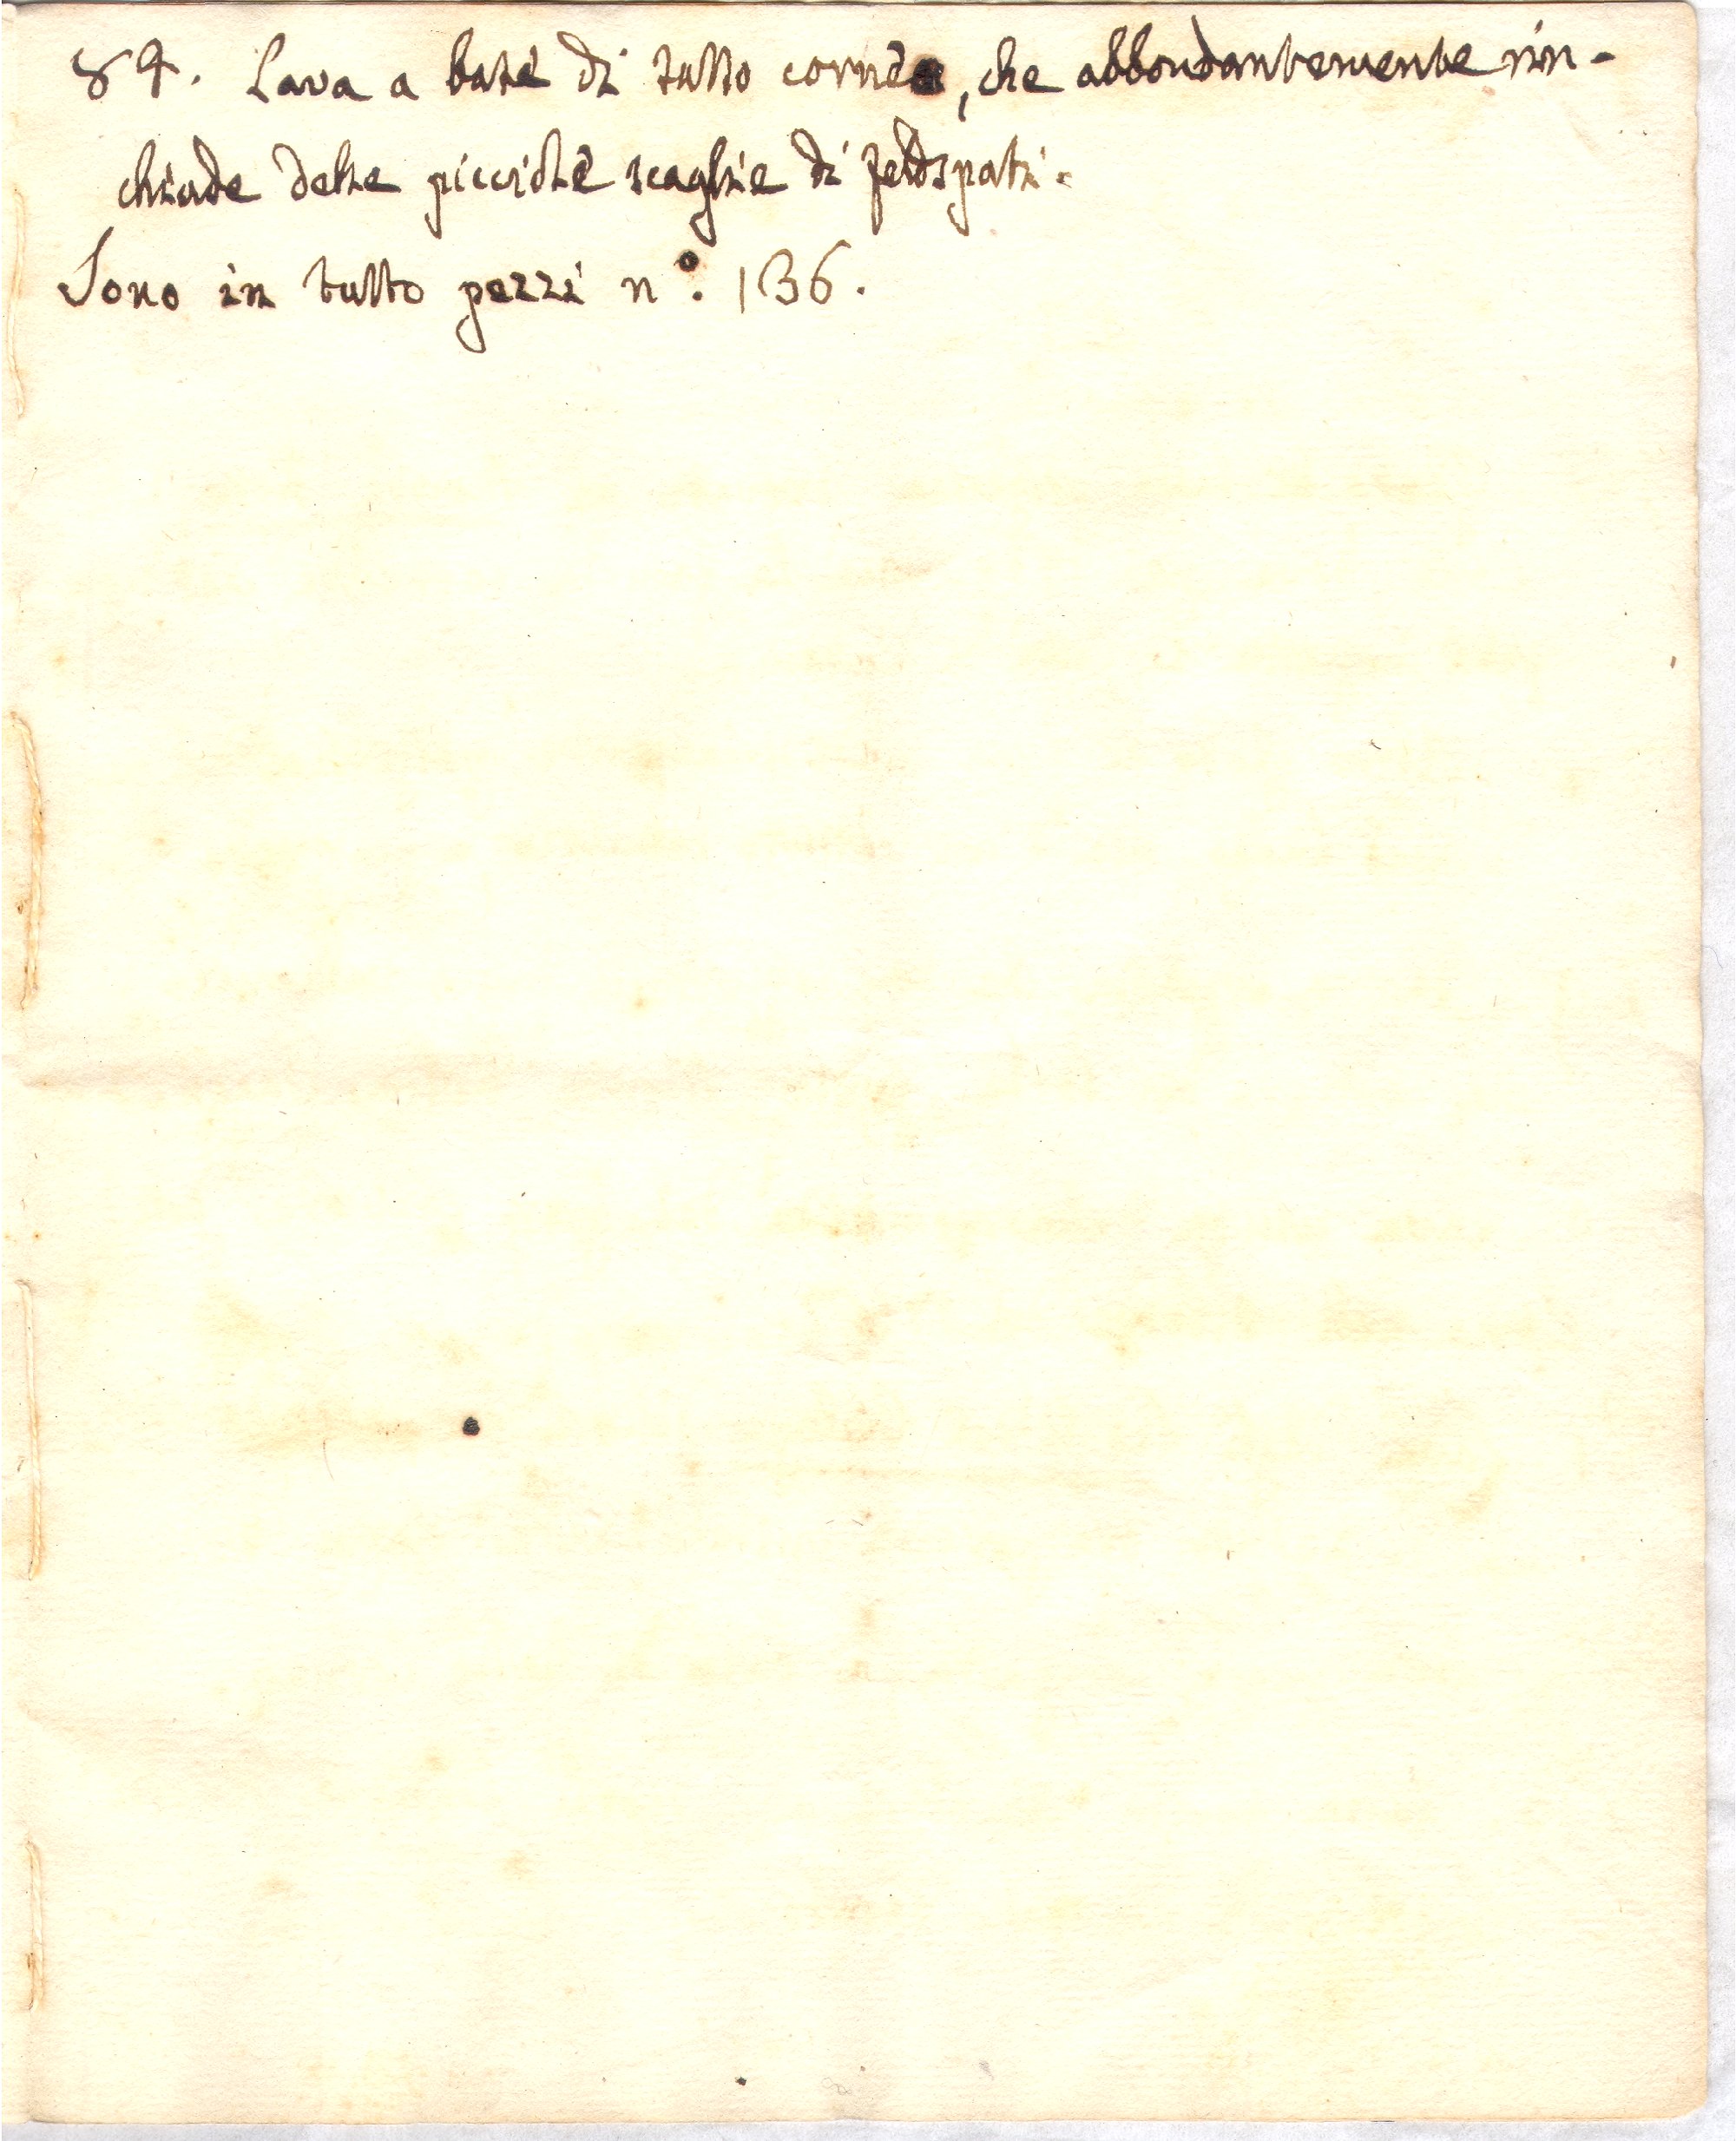 84. Lava a base di sasso corneo, che abbondantemente rin-
chiude delle picciole scaglie di feldspati.
Sono in tutto pezzi n.° 136.